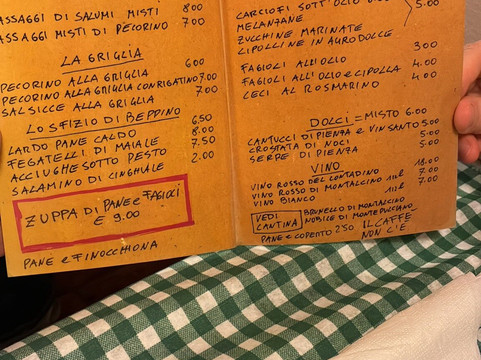 ASSAGGI DI SALUMI MISTI 8.00
ASSAGGI MISTI DI PECORINO 7.00
LA GRIGLIA
PECORINO ALLA GRIGLIA 6.00
PECORINO ALLA GRIGLIA CON RIGATINO 7.00
SALSICCE ALLA GRIGLIA 7.00
LO SFIZIO DI BEPPINO
LARDO PANE CALDO 6,50
FEGATELLI DI MAIALE 8.00
ACCIUGHE SOTTO PESTO 7.50
SALAMINO DI CINGHIALE 2.00
ZUPPA DI PANE e FAGIOLI
€ 9.00
PANE e FINOCCHIONA
CARCIOFI SOTT'OLIO
MELANZANE 5.00
ZUCCHINE MARINATE
CIPOLLINE IN AGRODOLCE
FAGIOLI ALL'OLIO 3.00
FAGIOLI ALL'OLIO e CIPOLLA 4.00
CECI AL ROSMARINO 4.00
DOLCI = MISTO 6.00
CANTUCCI DI PIENZA e VIN SANTO 5.00
CROSTATA DI NOCI 5.00
SERPE DI PIENZA 5.00
VINO
VINO ROSSO DEL CONTADINO 18.00
VINO ROSSO DI MONTALCINO 7.00
VINO BIANCO 7.00
VEDI CANTINA
BRUNELLO DI MONTALCINO
NOBILE DI MONTEPULCIANO
PANE e COPERTO 2.50 IL CAFFE
NON C'E'